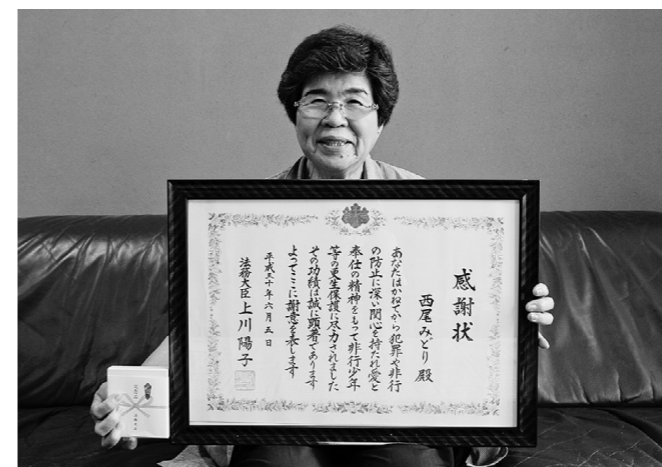 感謝状
西尾みどり 殿
あなたはかねてから犯罪や非行
の防止に深い関心を持たれ愛と
奉仕の精神をもって非行少年
等の更生保護に尽力されました
その功績は誠に顕著であります
よってここに謝意を表します
平成三十年六月五日
法務大臣 上川陽子